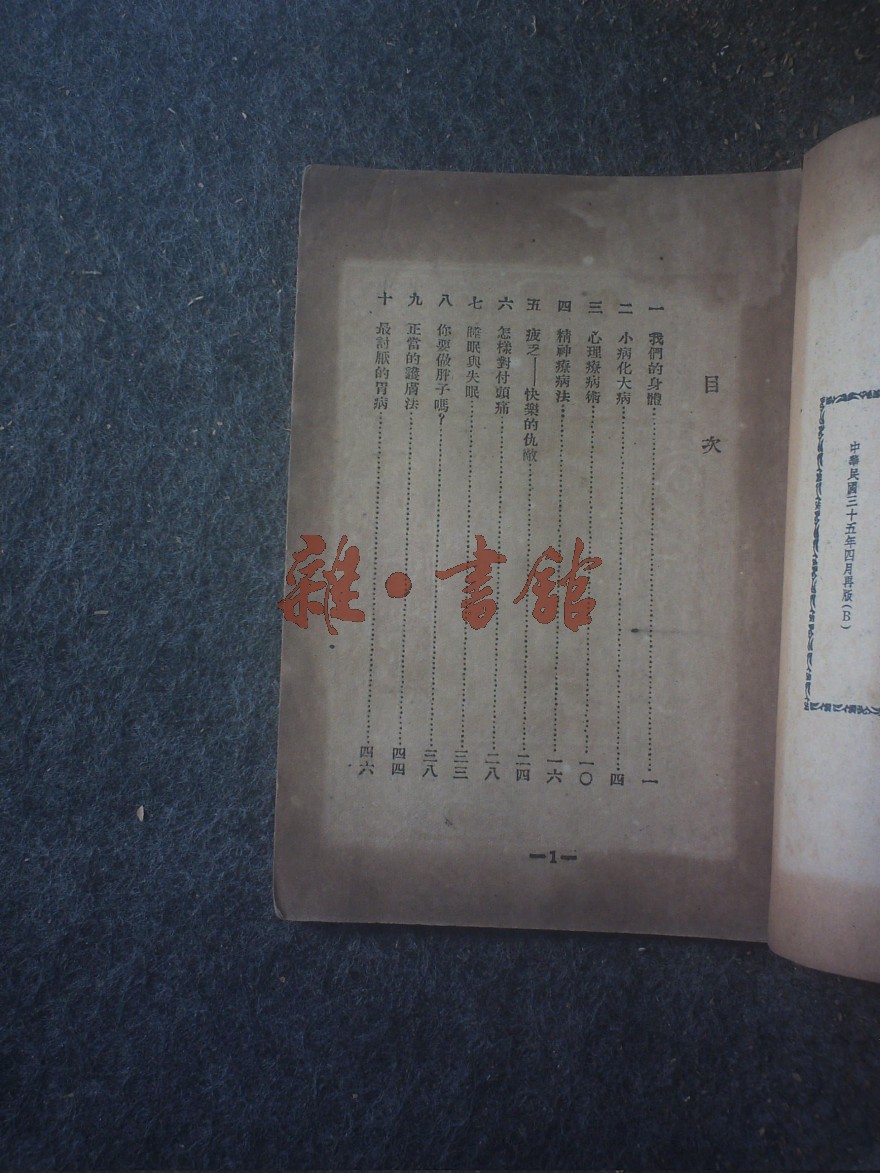 中華民國三十五年四月再版(B)
目次
一 我們的身體……一
二 小病化大病……四
三 心理療病術……一〇
四 精神療病法……一六
五 疲乏——快樂的仇敵……二四
六 怎樣對付頭痛……二八
七 睡眠與失眠……三三
八 你要做胖子嗎?……三八
九 正當的護膚法……四四
十 最討厭的胃病……四六
—1—
雜·書館